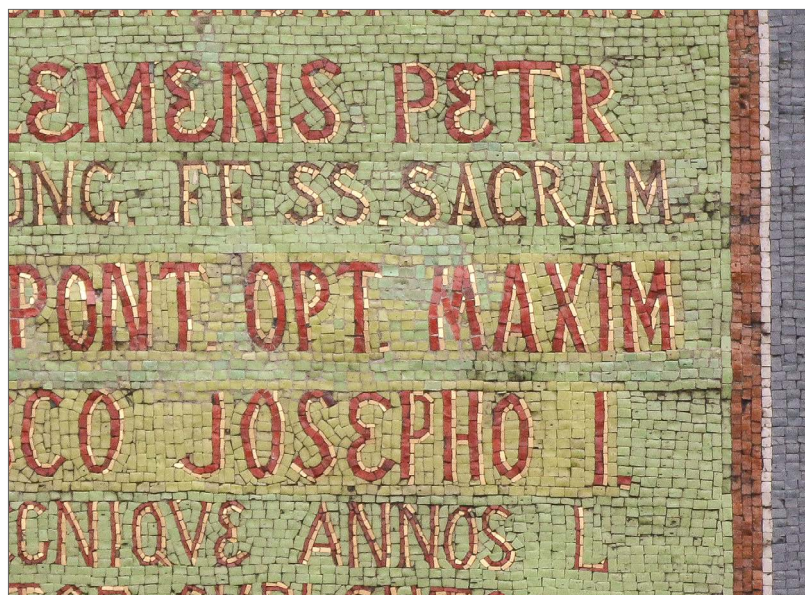 LEMENS PETR
ONC FF SS. SACRAM
PONT OPT MAXIM
SCO JOSEPHO I.
GNIQVE ANNOS L